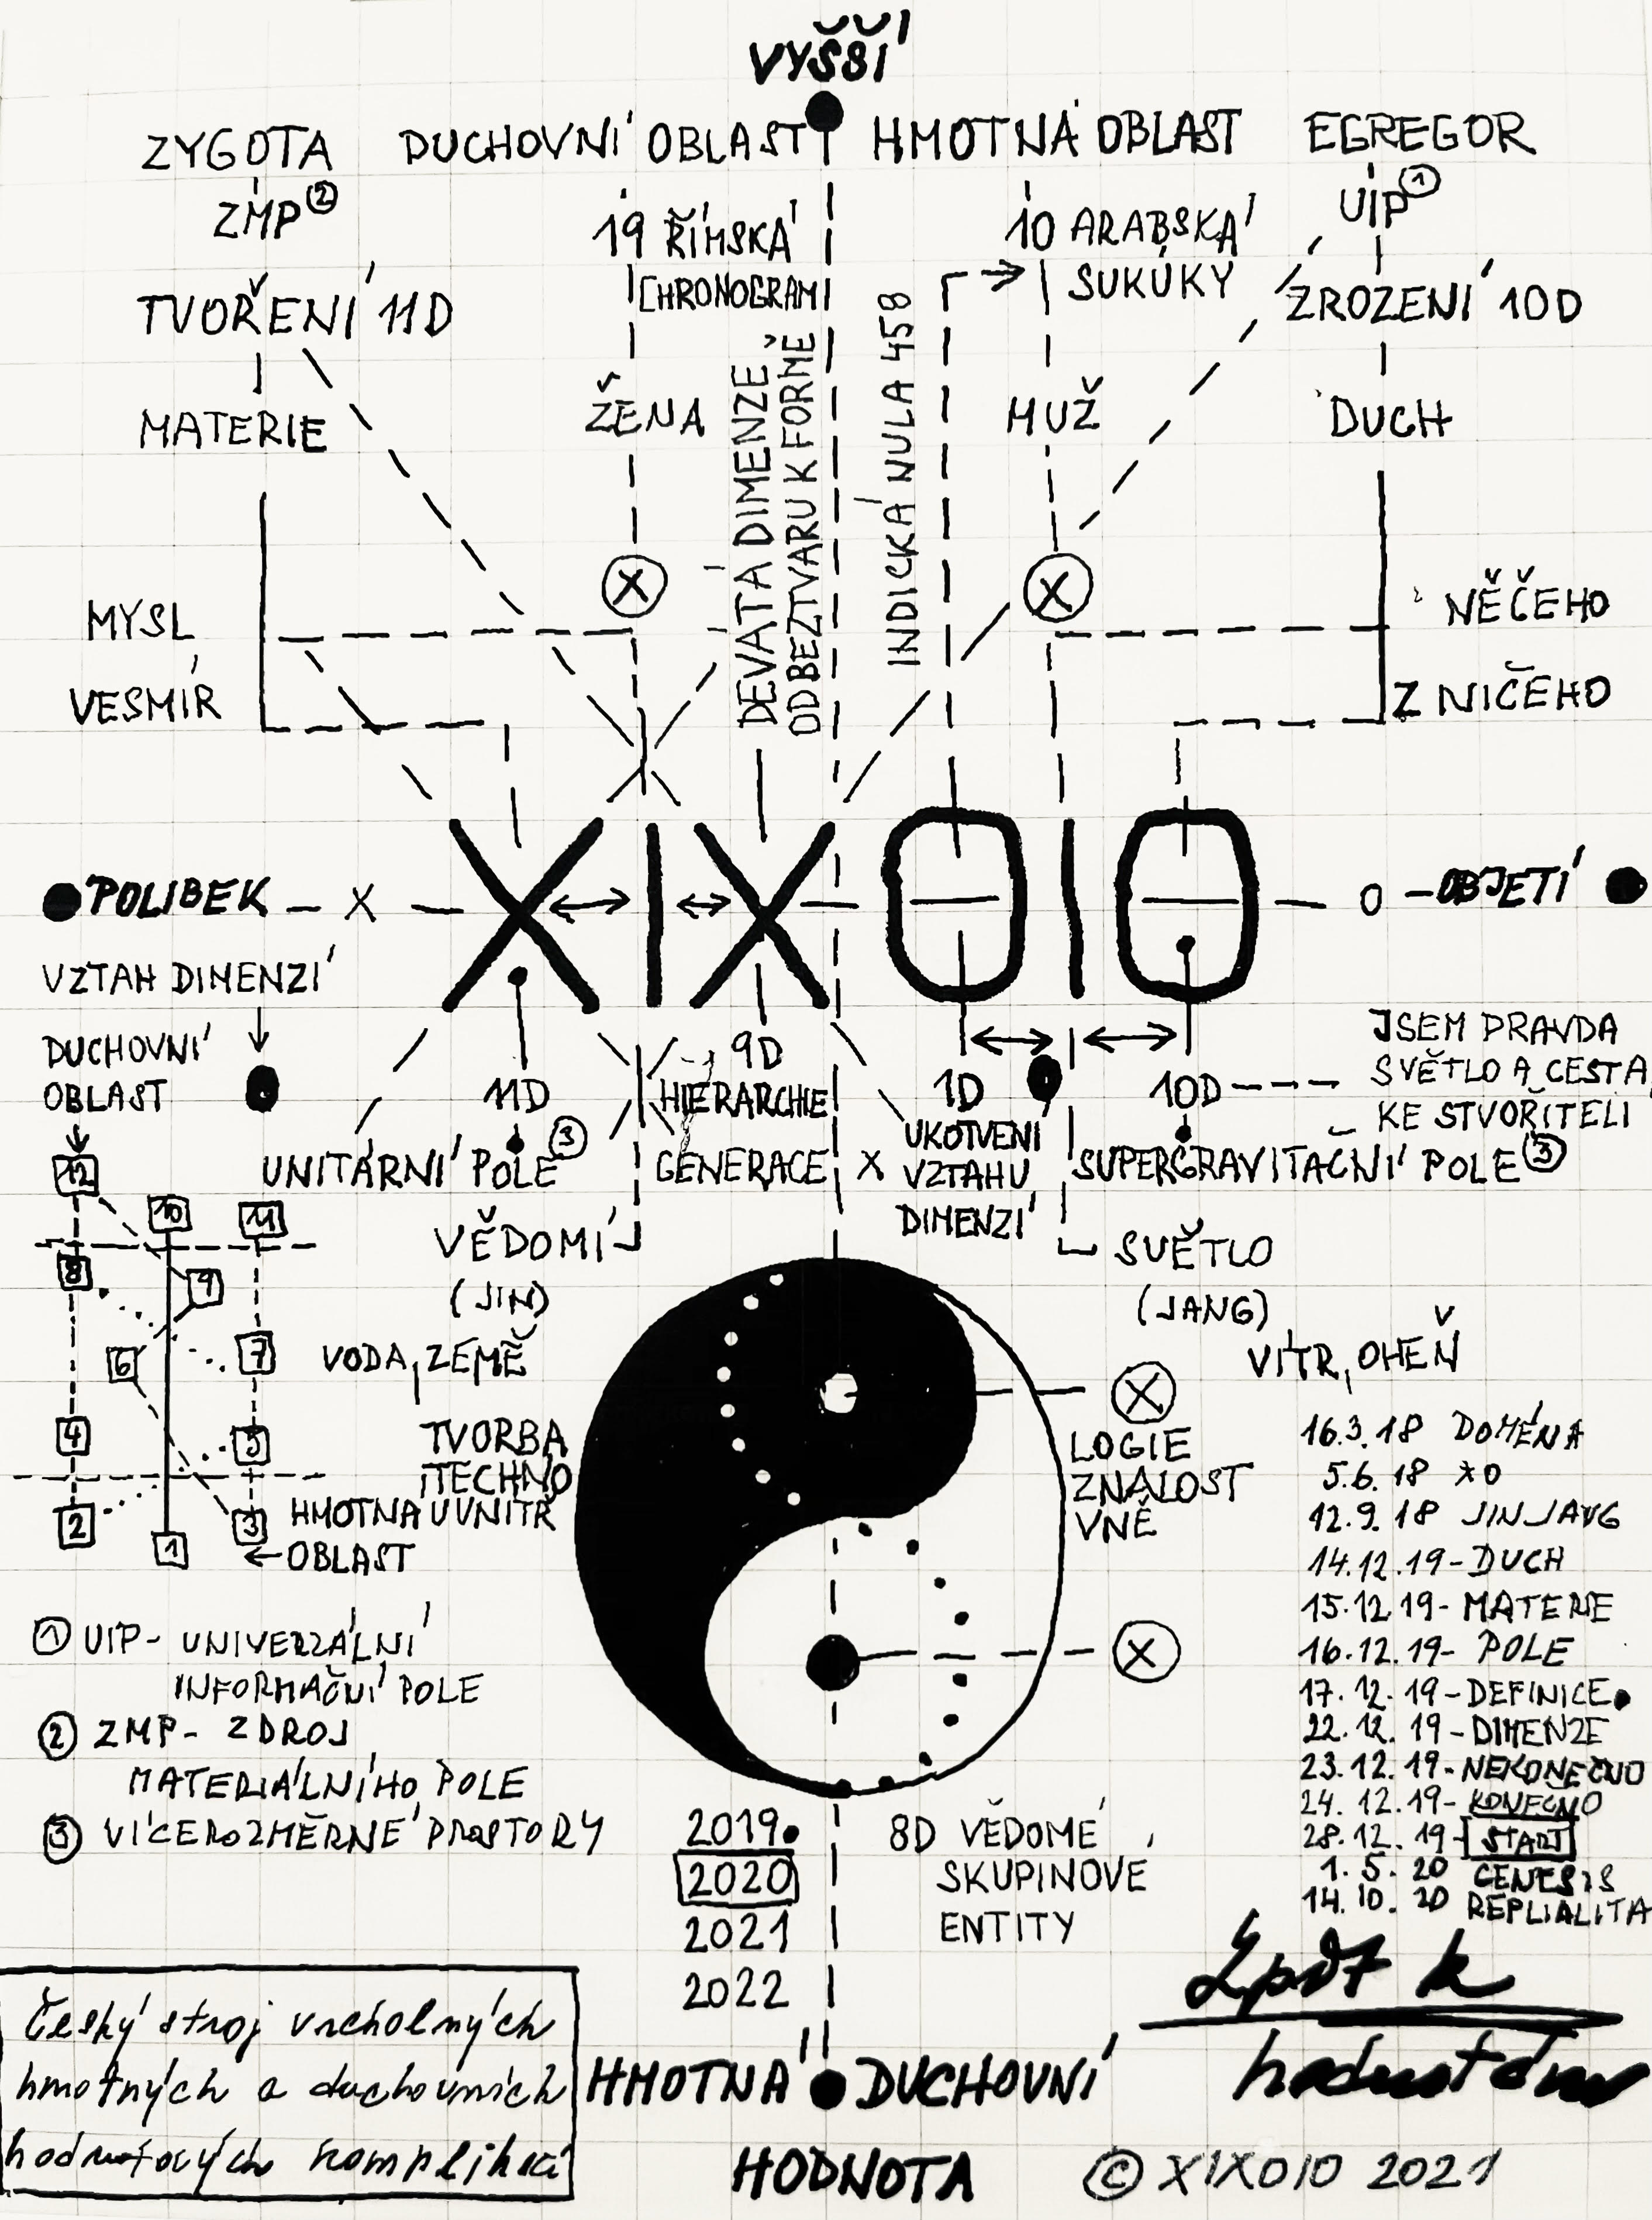 VYŠŠÍ
ZYGOTA DUCHOVNÍ OBLAST HMOTNÁ OBLAST EGREGOR
ZMP② 19 ŘÍMSKÁ 10 ARABSKÁ UIP①
CHRONOGRAM SUKÚKY
TVOŘENÍ 11D ZROZENÍ 10D
MATERIE ŽENA MUŽ DUCH
DEVATÁ DIMENZE
OD BEZTVARU K FORMĚ
INDICKÁ NULA 458
X X
MYSL NĚČEHO
VESMÍR Z NIČEHO
XIXOIO
POLIBEK – X – – O – OBJETÍ
VZTAH DIMENZÍ
DUCHOVNÍ
OBLAST
11D
UNITÁRNÍ POLE③
9D
HIERARCHIE
GENERACE X
1D
UKOTVENÍ
VZTAHU
DIMENZÍ
10D
SUPERGRAVITAČNÍ POLE③
JSEM PRAVDA
SVĚTLO A CESTA
KE STVOŘITELI
12
10 11
8 9
6 7
4 5
2 1 3
VĚDOMÍ
(JIN)
VODA, ZEMĚ
TVORBA
TECHNO
UVNITŘ
HMOTNÁ
OBLAST
SVĚTLO
(JANG)
VÍTR, OHEŇ
X
LOGIE
ZNALOST
VNĚ
X
16.3.18 DOMÉNA
5.6.18 XO
12.9.18 JINJANG
14.12.19 - DUCH
15.12.19 - MATERIE
16.12.19 - POLE
17.12.19 - DEFINICE
22.12.19 - DIMENZE
23.12.19 - NEKONEČNO
24.12.19 - KONEČNO
28.12.19 - START
1.5.20 GENESIS
14.10.20 REPLIALITA
① UIP - UNIVERZÁLNÍ
INFORMAČNÍ POLE
② ZMP - ZDROJ
MATERIÁLNÍHO POLE
③ VÍCEROZMĚRNÉ PROSTORY
2019
2020
2021
2022
8D VĚDOMÉ
SKUPINOVÉ
ENTITY
Český stroj vrcholných
hmotných a duchovních
hodnotových komplikací
Zpět k
hodnotám
HMOTNÁ DUCHOVNÍ
HODNOTA
© XIXOIO 2021